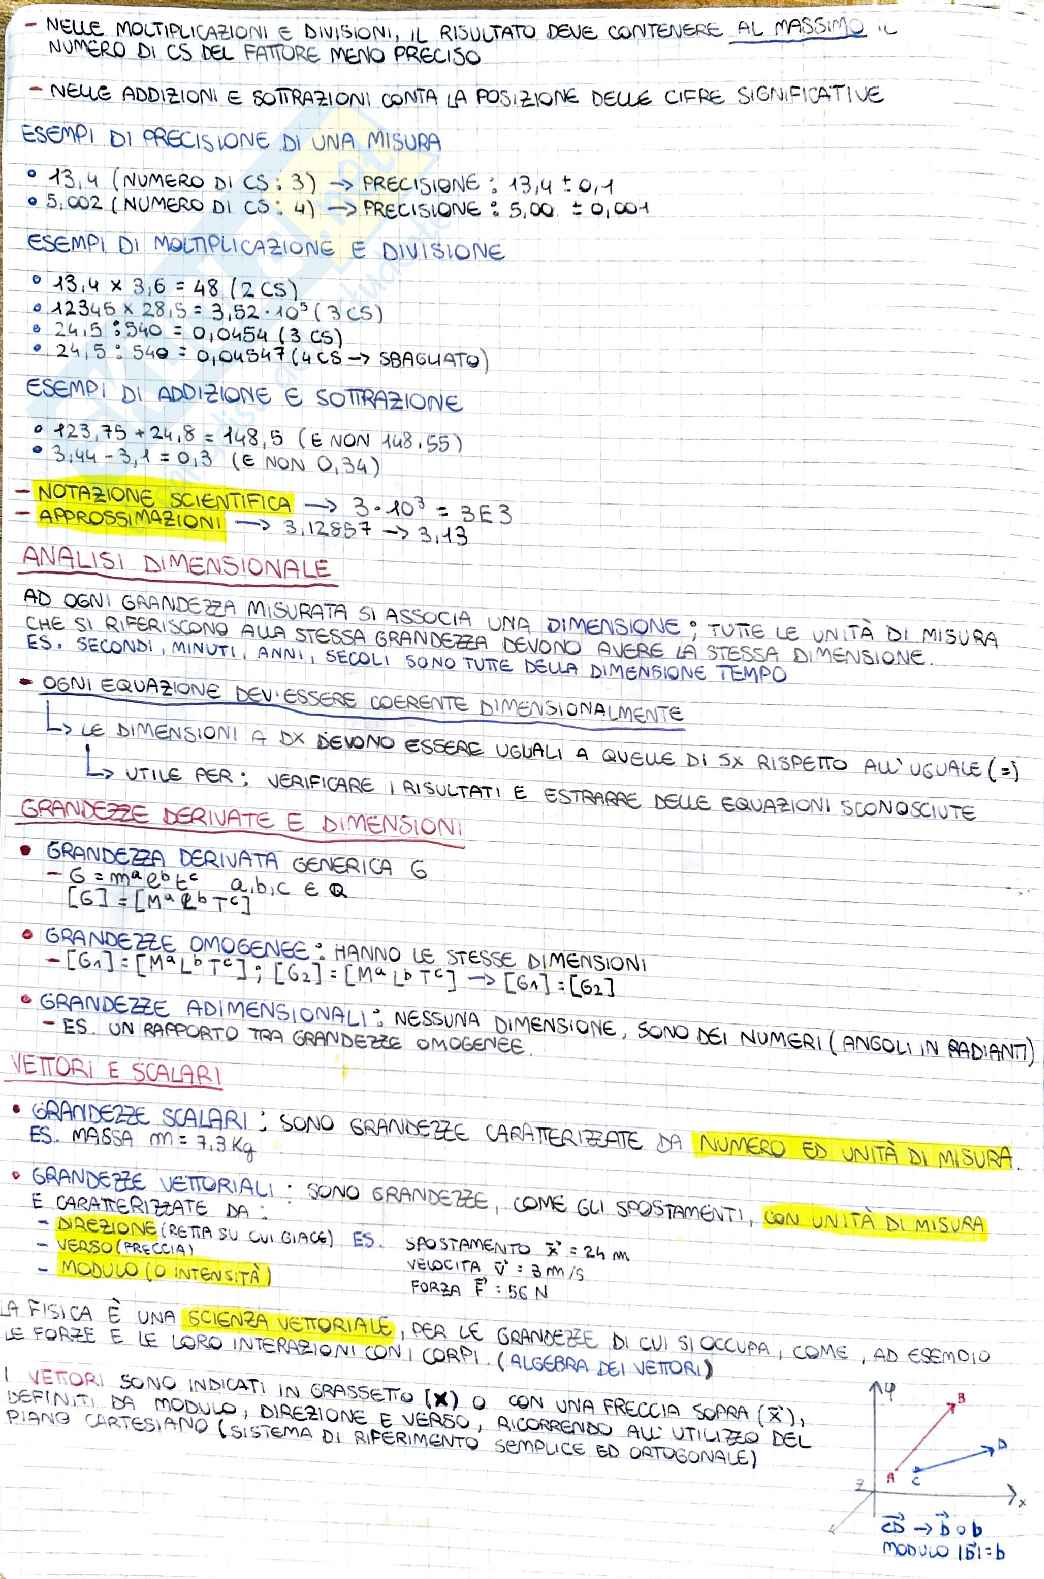 - NELLE MOLTIPLICAZIONI E DIVISIONI, IL RISULTATO DEVE CONTENERE AL MASSIMO IL
NUMERO DI CS DEL FATTORE MENO PRECISO
- NELLE ADDIZIONI E SOTTRAZIONI CONTA LA POSIZIONE DELLE CIFRE SIGNIFICATIVE
ESEMPI DI PRECISIONE DI UNA MISURA
• 13,4 (NUMERO DI CS: 3) → PRECISIONE: 13,4 ± 0,1
• 5,002 (NUMERO DI CS: 4) → PRECISIONE: 5,00 ± 0,001
ESEMPI DI MOLTIPLICAZIONE E DIVISIONE
• 13,4 × 3,6 = 48 (2 CS)
• 12345 × 28,5 = 3,52 · 10⁵ (3 CS)
• 24,5 : 540 = 0,0454 (3 CS)
• 24,5 : 540 = 0,04547 (4 CS → SBAGLIATO)
ESEMPI DI ADDIZIONE E SOTTRAZIONE
• 123,75 + 24,8 = 148,5 (E NON 148,55)
• 3,44 - 3,1 = 0,3 (E NON 0,34)
- NOTAZIONE SCIENTIFICA → 3 · 10³ = 3E3
- APPROSSIMAZIONI → 3,12857 → 3,13
ANALISI DIMENSIONALE
AD OGNI GRANDEZZA MISURATA SI ASSOCIA UNA DIMENSIONE; TUTTE LE UNITÀ DI MISURA
CHE SI RIFERISCONO ALLA STESSA GRANDEZZA DEVONO AVERE LA STESSA DIMENSIONE.
ES. SECONDI, MINUTI, ANNI, SECOLI SONO TUTTE DELLA DIMENSIONE TEMPO
- OGNI EQUAZIONE DEV'ESSERE COERENTE DIMENSIONALMENTE
↳ LE DIMENSIONI A DX DEVONO ESSERE UGUALI A QUELLE DI SX RISPETTO ALL'UGUALE (=)
↳ UTILE PER: VERIFICARE I RISULTATI E ESTRARRE DELLE EQUAZIONI SCONOSCIUTE
GRANDEZZE DERIVATE E DIMENSIONI
• GRANDEZZA DERIVATA GENERICA G
- G = mᵃ ℓᵇ tᶜ a, b, c ∈ Q
[G] = [Mᵃ Lᵇ Tᶜ]
• GRANDEZZE OMOGENEE: HANNO LE STESSE DIMENSIONI
- [G₁] = [Mᵃ Lᵇ Tᶜ]; [G₂] = [Mᵃ Lᵇ Tᶜ] → [G₁] = [G₂]
• GRANDEZZE ADIMENSIONALI: NESSUNA DIMENSIONE, SONO DEI NUMERI (ANGOLI IN RADIANTI)
- ES. UN RAPPORTO TRA GRANDEZZE OMOGENEE.
VETTORI E SCALARI
• GRANDEZZE SCALARI: SONO GRANDEZZE CARATTERIZZATE DA NUMERO ED UNITÀ DI MISURA.
ES. MASSA m = 7,3 Kg
• GRANDEZZE VETTORIALI: SONO GRANDEZZE, COME GLI SPOSTAMENTI, CON UNITÀ DI MISURA
E CARATTERIZZATE DA:
- DIREZIONE (RETTA SU CUI GIACE) ES. SPOSTAMENTO x⃗ = 24 m
- VERSO (FRECCIA) VELOCITA v⃗ : 3 m/s
- MODULO (O INTENSITÀ) FORZA F⃗ : 56 N
LA FISICA È UNA SCIENZA VETTORIALE, PER LE GRANDEZZE DI CUI SI OCCUPA, COME, AD ESEMPIO
LE FORZE E LE LORO INTERAZIONI CON I CORPI. (ALGEBRA DEI VETTORI)
I VETTORI SONO INDICATI IN GRASSETTO (X) O CON UNA FRECCIA SOPRA (x⃗),
DEFINITI DA MODULO, DIREZIONE E VERSO, RICORRENDO ALL'UTILIZZO DEL
PIANO CARTESIANO (SISTEMA DI RIFERIMENTO SEMPLICE ED ORTOGONALE)
y
B
D
A C
z
x
CD⃗ → b⃗ o b
MODULO |b⃗| = b